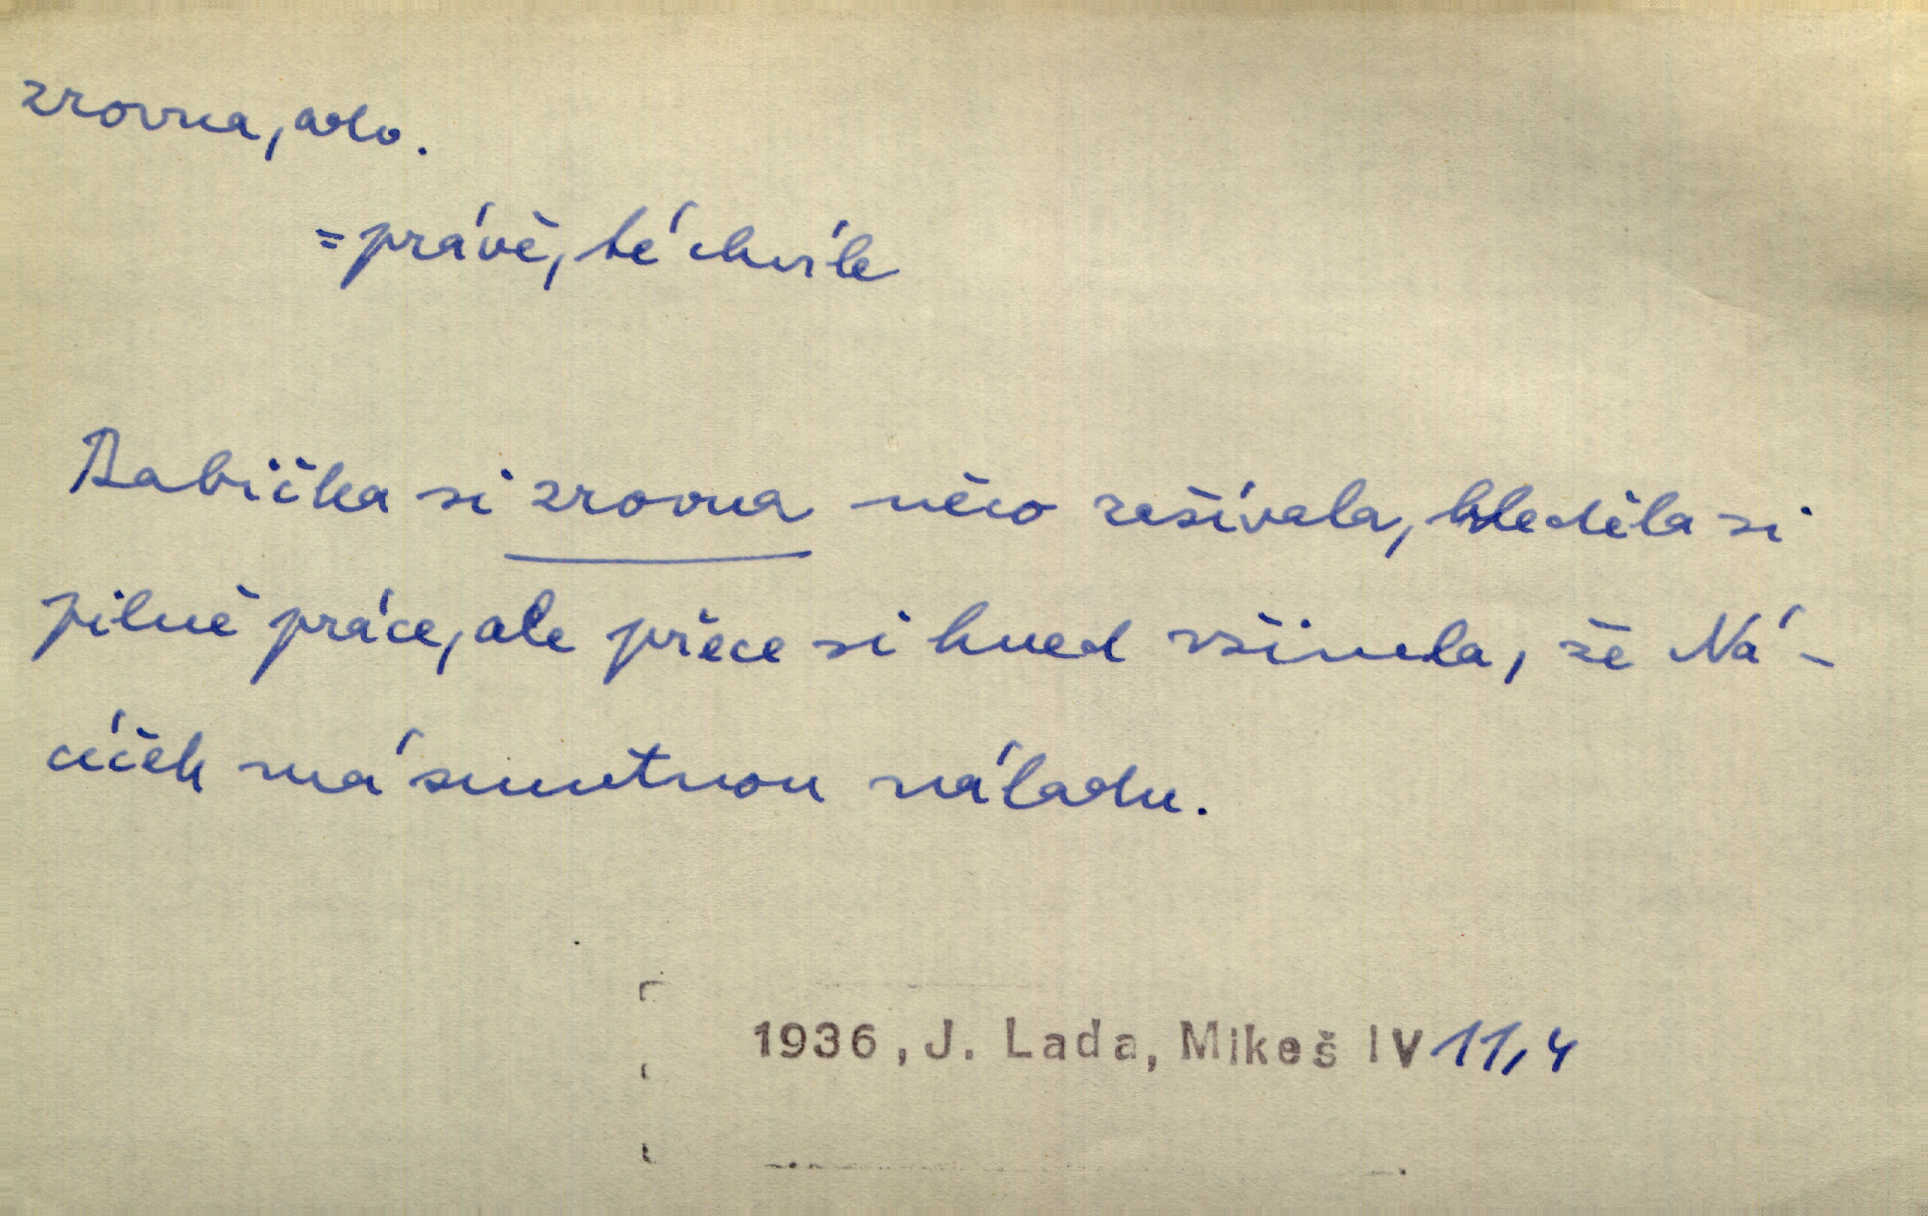 zrovna, adv.
= právě, té chvíle
Babička si zrovna něco zešívala, hleděla si
pilně práce, ale přece si hned všimla, že Ná-
cíček má smutnou náladu.
1936, J. Lada, Mikeš IV 11,4